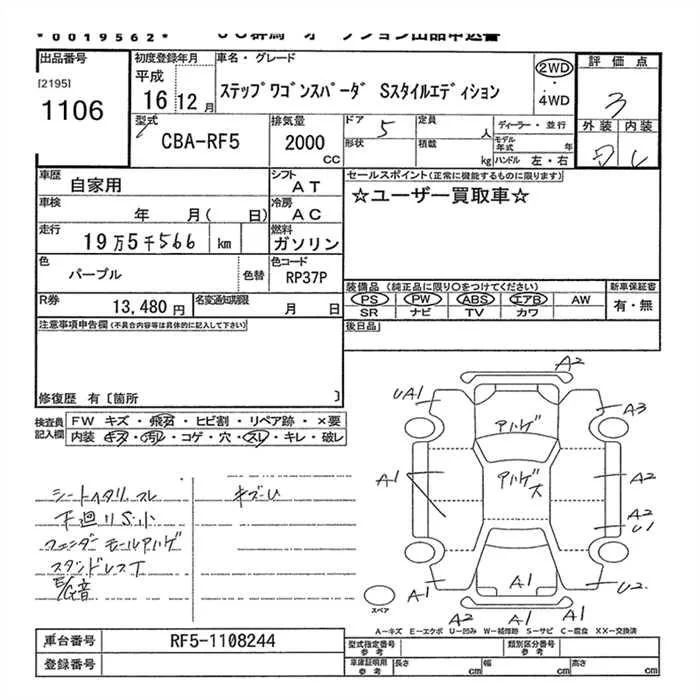 *0019562*
出品番号
[2195]
1106
初度登録年月
平成
16 12月
車名・グレード
ステップワゴンスパーダ Sスタイルエディション
2WD
・
4WD
評価点
3
外装 内装
型式
CBA-RF5
排気量
2000
cc
ドア 5
定員 人
形状
積載 kg
ディーラー・並行
モデル年式 年
ハンドル 左・右
車歴
自家用
シフト
AT
車検
年 月( 日)
冷房
AC
走行
19万5千566 km
燃料
ガソリン
色
パープル
色替
色コード
RP37P
R券
13,480円
名変通知期限
月 日
セールスポイント(正常に機能するものに限ります)
☆ユーザー買取車☆
装備品 (純正品に限り○をつけてください)
PS PW ABS エアB AW
SR ナビ TV カワ
新車保証書
有・無
後日品
注意事項申告欄(不具合内容等は具体的に記入して下さい)
修復歴 有〔箇所 〕
検査員記入欄
FW キズ・飛石・ヒビ割・リペア跡・×要
内装 キズ・汚レ・コゲ・穴・スレ・キレ・破レ
シートイタリ、スレ
下廻りS小
フェンダーモールアハゲ
スタンドレスT
キズ・U
A2
UA1
アハゲ
A3
アハゲ大
A1
A2
A2
U1
A1
A1
U2
A2
A1
A1
スペア
A-キズ E-エクボ U-凹み W-補修跡 S-サビ C-腐食 XX-交換済
車台番号
RF5-1108244
登録番号
型式指定番号
参考
類別区分番号
参考
車庫証明用
参考
長さ cm
幅 cm
高さ cm